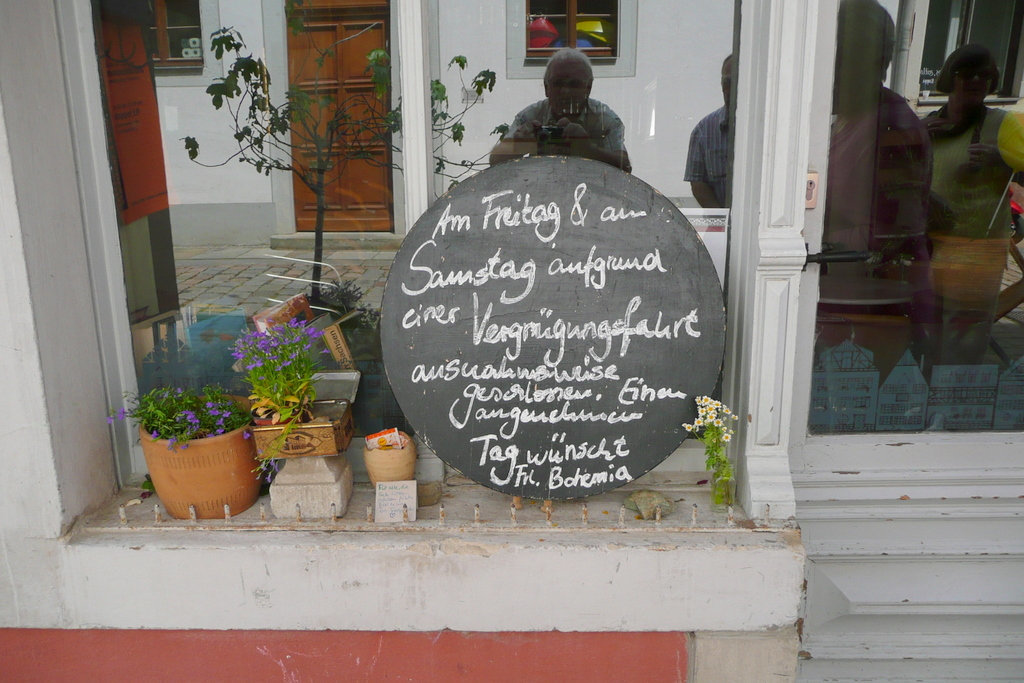 Am Freitag & am
Samstag aufgrund
einer Vergnügungsfahrt
ausnahmsweise
geschlossen. Einen
angenehmen
Tag wünscht
Frl. Bohemia